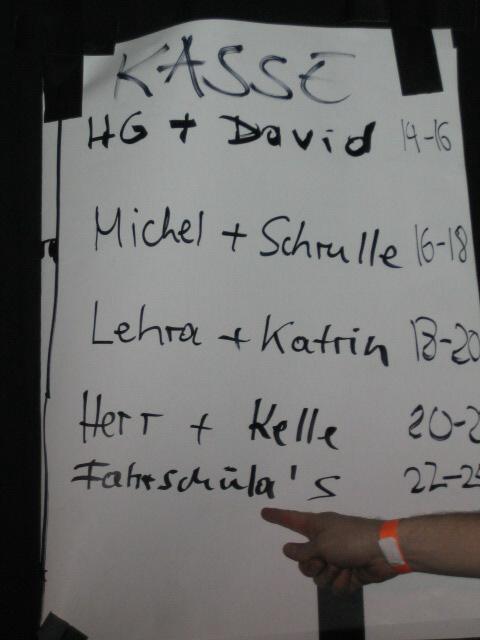 KASSE
HG + David 14-16
Michel + Schrulle 16-18
Lehra + Katrin 18-20
Herr + Kelle 20-2
Fahrschüla's 22-2